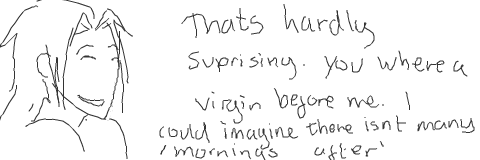 Thats hardly
Suprising. you where a
virgin before me. I
could imagine there isnt many
'mornings after'